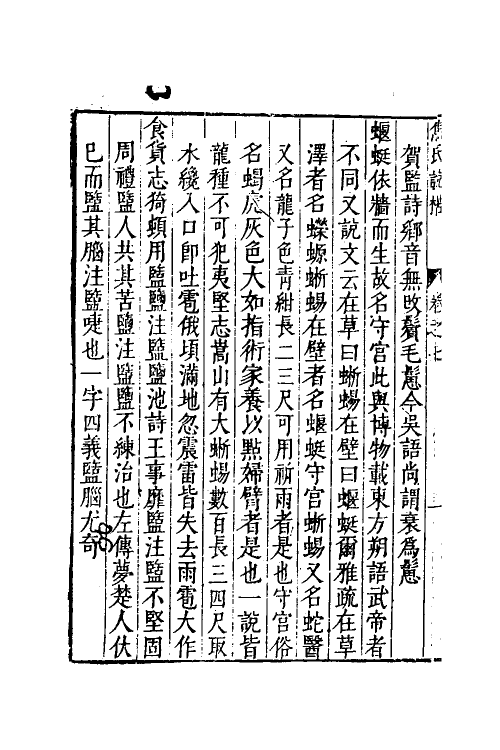 焦氏說楛 卷之七
賀監詩鄉音無改鬢毛鬆今吳語尚謂衰爲鬆
蝘蜓依牆而生故名守宮此與博物載東方朔語武帝者
不同又說文云在草曰蜥蜴在壁曰蝘蜓爾雅疏在草
澤者名蠑螈蜥蜴在壁者名蝘蜓守宮蜥蜴又名蛇醫
又名龍子色青紺長二三尺可用祈雨者是也守宮俗
名蝎虎灰色大如指術家養以點婦臂者是也一說皆
龍種不可犯夷堅志嵩山有大蜥蜴數百長三四尺取
水纔入口卽吐雹俄頃滿地忽震雷皆失去雨雹大作
食貨志猗頓用盬鹽注盬鹽池詩王事靡盬注盬不堅固
周禮鹽人共其苦鹽注盬鹽不練治也左傳夢楚人伏
已而盬其腦注盬啑也一字四義盬腦尤奇